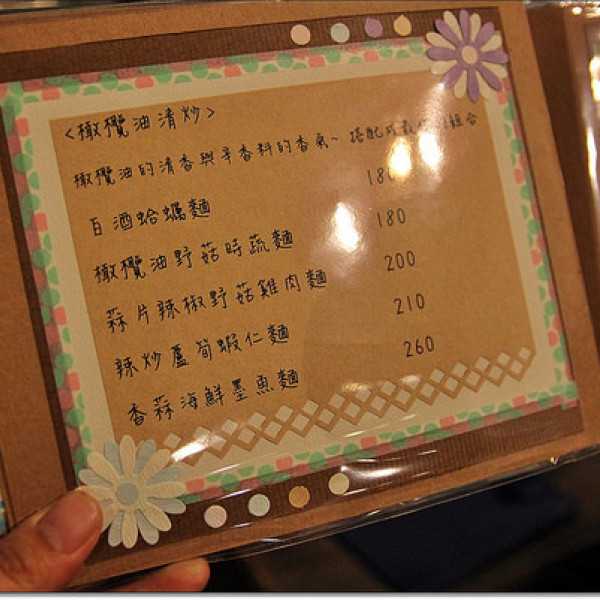 <橄欖油清炒>
橄欖油的清香與辛香料的香氣~ 搭配成最 組合
白酒蛤蠣麵 180
橄欖油野菇時蔬麵 180
蒜片辣椒野菇雞肉麵 200
辣炒蘆筍蝦仁麵 210
香蒜海鮮墨魚麵 260